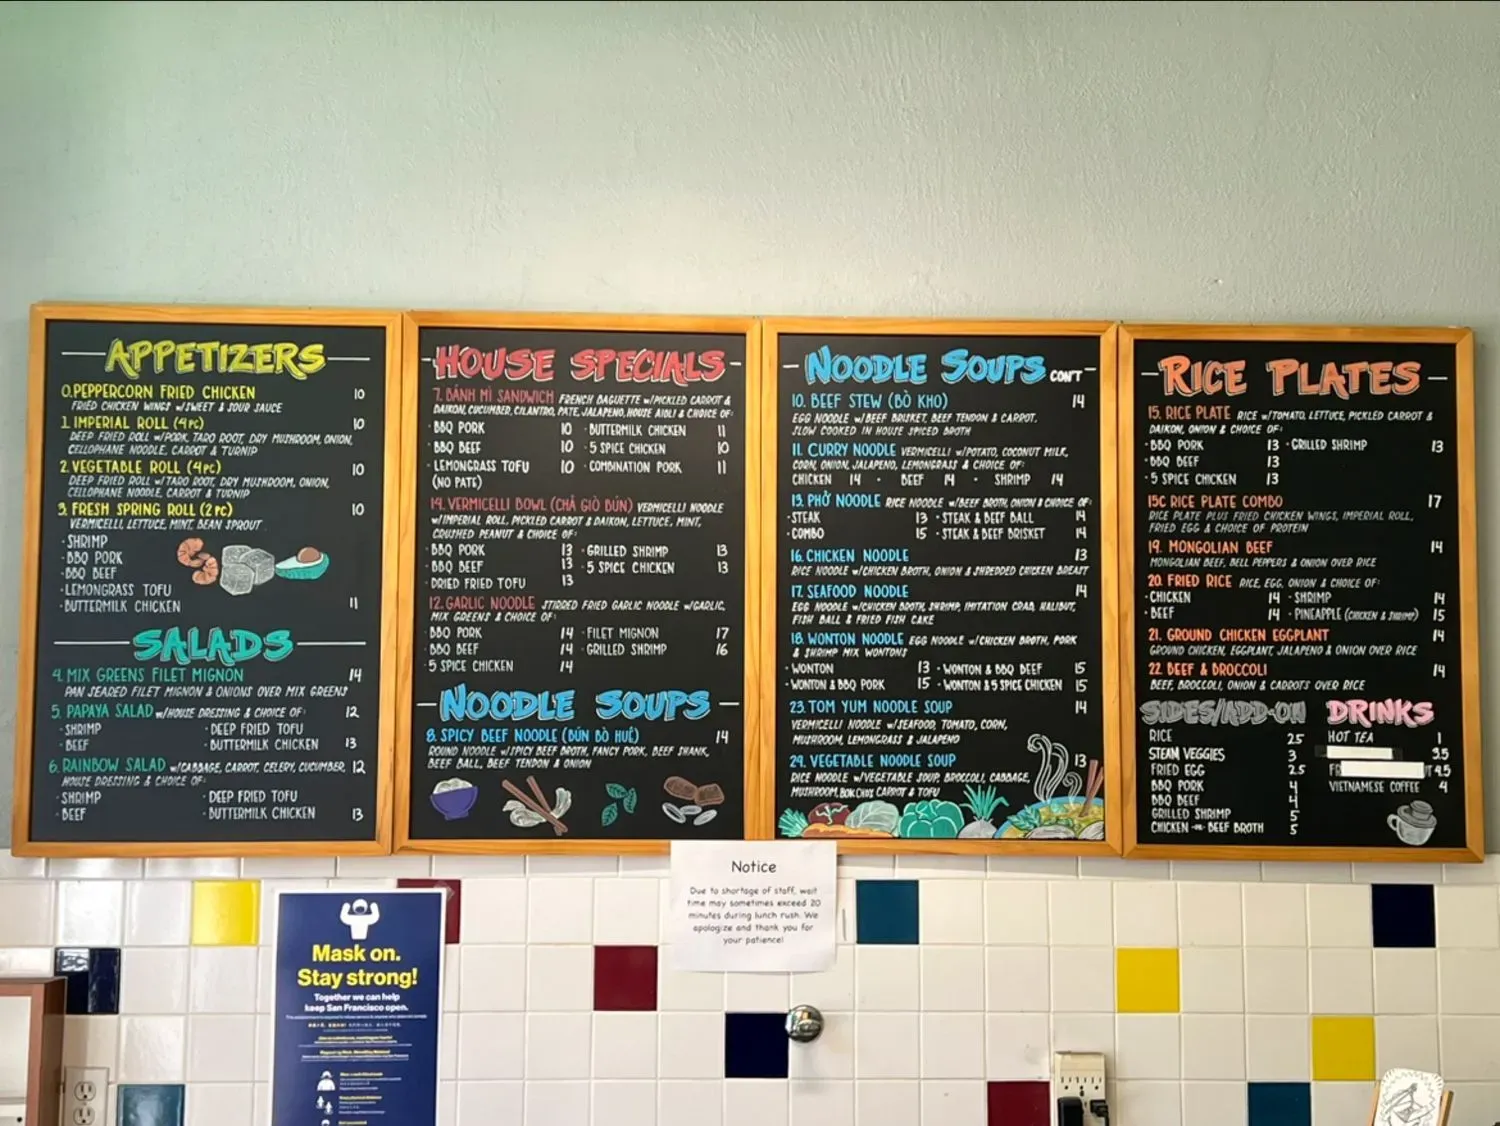 APPETIZERS
0. PEPPERCORN FRIED CHICKEN 10
FRIED CHICKEN WINGS w/SWEET & SOUR SAUCE
1. IMPERIAL ROLL (4 PC) 10
DEEP FRIED ROLL w/PORK, TARO ROOT, DRY MUSHROOM, ONION,
CELLOPHANE NOODLE, CARROT & TURNIP
2. VEGETABLE ROLL (4 PC) 10
DEEP FRIED ROLL w/TARO ROOT, DRY MUSHROOM, ONION,
CELLOPHANE NOODLE, CARROT & TURNIP
3. FRESH SPRING ROLL (2 PC) 10
VERMICELLI, LETTUCE, MINT, BEAN SPROUT
·SHRIMP
·BBQ PORK
·BBQ BEEF
·LEMONGRASS TOFU
·BUTTERMILK CHICKEN 11
SALADS
4. MIX GREENS FILET MIGNON 14
PAN SEARED FILET MIGNON & ONIONS OVER MIX GREENS
5. PAPAYA SALAD w/HOUSE DRESSING & CHOICE OF: 12
·SHRIMP ·DEEP FRIED TOFU
·BEEF ·BUTTERMILK CHICKEN 13
6. RAINBOW SALAD w/CABBAGE, CARROT, CELERY, CUCUMBER, 12
HOUSE DRESSING & CHOICE OF:
·SHRIMP ·DEEP FRIED TOFU
·BEEF ·BUTTERMILK CHICKEN 13
HOUSE SPECIALS
7. BÁNH MÌ SANDWICH FRENCH BAGUETTE w/PICKLED CARROT &
DAIKON, CUCUMBER, CILANTRO, PATE, JALAPENO, HOUSE AIOLI & CHOICE OF:
·BBQ PORK 10 ·BUTTERMILK CHICKEN 11
·BBQ BEEF 10 ·5 SPICE CHICKEN 10
·LEMONGRASS TOFU 10 ·COMBINATION PORK 11
(NO PATE)
14. VERMICELLI BOWL (CHẢ GIÒ BÚN) VERMICELLI NOODLE
w/IMPERIAL ROLL, PICKLED CARROT & DAIKON, LETTUCE, MINT,
CRUSHED PEANUT & CHOICE OF:
·BBQ PORK 13 ·GRILLED SHRIMP 13
·BBQ BEEF 13 ·5 SPICE CHICKEN 13
·DRIED FRIED TOFU 13
12. GARLIC NOODLE STIRRED FRIED GARLIC NOODLE w/GARLIC,
MIX GREENS & CHOICE OF:
·BBQ PORK 14 ·FILET MIGNON 17
·BBQ BEEF 14 ·GRILLED SHRIMP 16
·5 SPICE CHICKEN 14
NOODLE SOUPS
8. SPICY BEEF NOODLE (BÚN BÒ HUẾ) 14
ROUND NOODLE w/SPICY BEEF BROTH, FANCY PORK, BEEF SHANK,
BEEF BALL, BEEF TENDON & ONION
NOODLE SOUPS CON'T
10. BEEF STEW (BÒ KHO) 14
EGG NOODLE w/BEEF BRISKET, BEEF TENDON & CARROT.
SLOW COOKED IN HOUSE SPICED BROTH
11. CURRY NOODLE VERMICELLI w/POTATO, COCONUT MILK,
CORN, ONION, JALAPENO, LEMONGRASS & CHOICE OF:
CHICKEN 14 · BEEF 14 · SHRIMP 14
13. PHỞ NOODLE RICE NOODLE w/BEEF BROTH, ONION & CHOICE OF:
·STEAK 13 ·STEAK & BEEF BALL 14
·COMBO 15 ·STEAK & BEEF BRISKET 14
16. CHICKEN NOODLE 13
RICE NOODLE w/CHICKEN BROTH, ONION & SHREDDED CHICKEN BREAST
17. SEAFOOD NOODLE 14
EGG NOODLE w/CHICKEN BROTH, SHRIMP, IMITATION CRAB, HALIBUT,
FISH BALL & FRIED FISH CAKE
18. WONTON NOODLE EGG NOODLE w/CHICKEN BROTH, PORK
& SHRIMP MIX WONTONS
·WONTON 13 ·WONTON & BBQ BEEF 15
·WONTON & BBQ PORK 15 ·WONTON & 5 SPICE CHICKEN 15
23. TOM YUM NOODLE SOUP 14
VERMICELLI NOODLE w/SEAFOOD, TOMATO, CORN,
MUSHROOM, LEMONGRASS & JALAPENO
24. VEGETABLE NOODLE SOUP 13
RICE NOODLE w/VEGETABLE SOUP, BROCCOLI, CABBAGE,
MUSHROOM, BOK CHOY, CARROT & TOFU
RICE PLATES
15. RICE PLATE RICE w/TOMATO, LETTUCE, PICKLED CARROT &
DAIKON, ONION & CHOICE OF:
·BBQ PORK 13 ·GRILLED SHRIMP 13
·BBQ BEEF 13
·5 SPICE CHICKEN 13
15C RICE PLATE COMBO 17
RICE PLATE PLUS FRIED CHICKEN WINGS, IMPERIAL ROLL,
FRIED EGG & CHOICE OF PROTEIN
19. MONGOLIAN BEEF 14
MONGOLIAN BEEF, BELL PEPPERS & ONION OVER RICE
20. FRIED RICE RICE, EGG, ONION & CHOICE OF:
·CHICKEN 14 ·SHRIMP 14
·BEEF 14 ·PINEAPPLE (CHICKEN & SHRIMP) 15
21. GROUND CHICKEN EGGPLANT 14
GROUND CHICKEN, EGGPLANT, JALAPENO & ONION OVER RICE
22. BEEF & BROCCOLI 14
BEEF, BROCCOLI, ONION & CARROTS OVER RICE
SIDES/ADD-ON
RICE 2.5
STEAM VEGGIES 3
FRIED EGG 2.5
BBQ PORK 4
BBQ BEEF 4
GRILLED SHRIMP 5
CHICKEN OR BEEF BROTH 5
DRINKS
HOT TEA 1
3.5
4.5
VIETNAMESE COFFEE 4
Notice
Due to shortage of staff, wait
time may sometimes exceed 20
minutes during lunch rush. We
apologize and thank you for
your patience!
Mask on.
Stay strong!
Together we can help
keep San Francisco open.